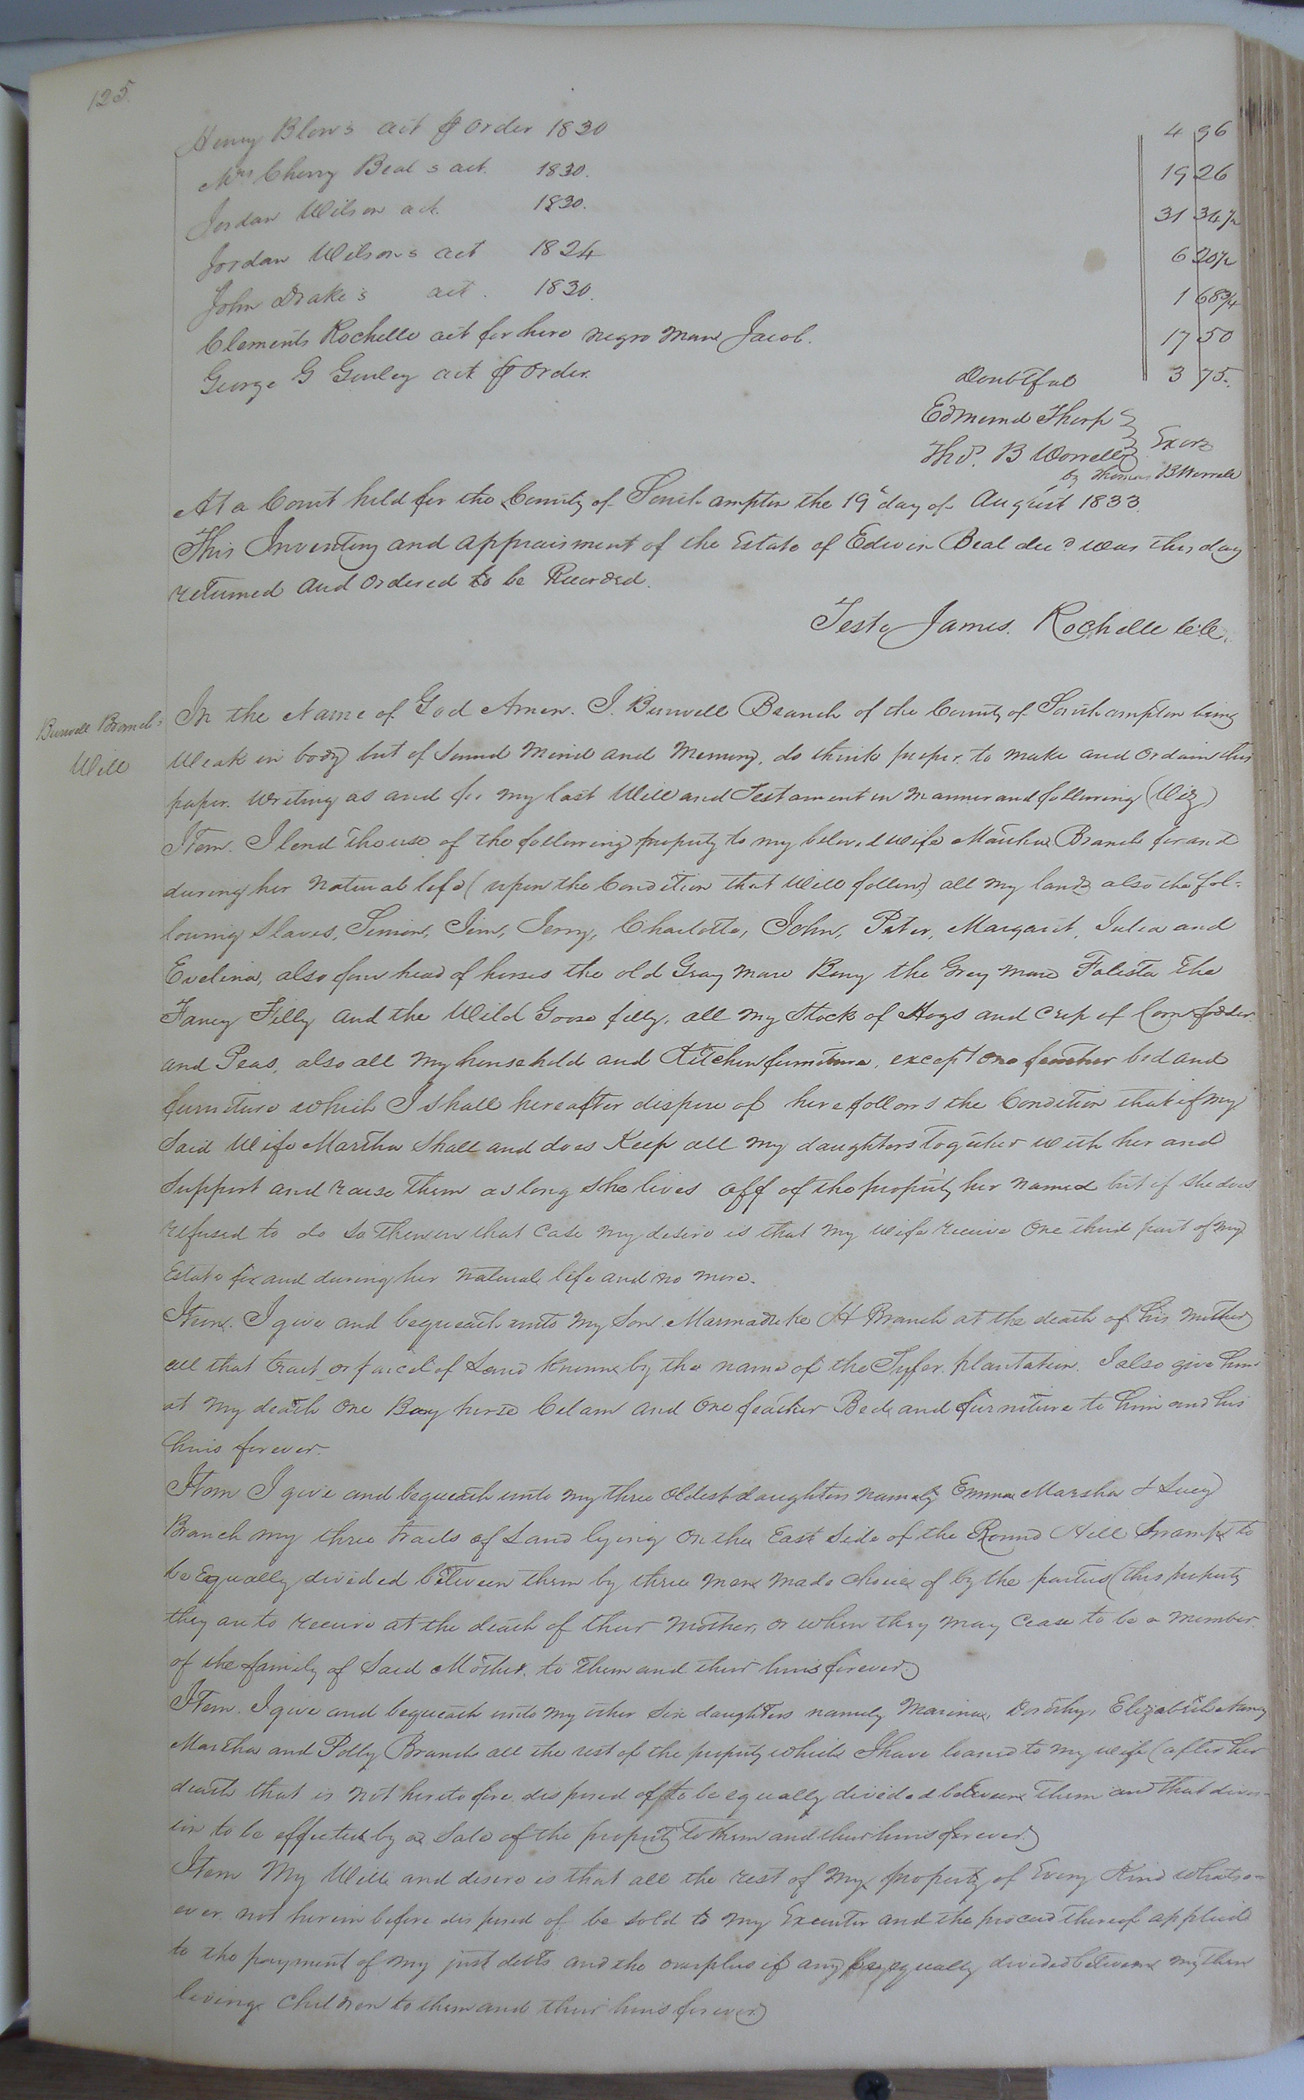 125.
Henry Blow's act & order 1830 4 96
Mrs Cherry Beal s act. 1830. 19 26
Jordan Wilson act. 1830. 31 34½
Jordan Wilsons act 1824 6 20½
John Drake's act. 1830. 1 68¾
Clements Rochelle act for hire negro man Jacob. 17 50
George G Gurley act & order. Doubtful 3 75.
Edmund Thorp
Thos. B Worrell Exors
by Thomas B Worrell
At a Court held for the County of Southampton the 19th day of August 1833.
This Inventory and appraisment of the Estate of Edwin Beal decd was this day
returned and ordered to be Recorded.
Teste James. Rochelle Clk.
Burwell Branch's
Will
In the Name of God Amen. I. Burwell Branch of the County of Southampton being
Weak in body but of Sound Mind and Memory, do think proper to make and ordain this
paper. Writing as and for my last Will and Testament in manner and following (Viz)
Item. I lend the use of the following property to my beloved wife Martha Branch for and
during her natural life (upon the Condition that will follow) all my lands also the fol-
lowing Slaves, Simon, Jim, Jerry, Charlotte, John, Peter, Margaret, Julia and
Evelina, also four head of horses the old Gray mare Bony the Grey mare Falista The
Fancy Filly and the Wild Goose filly, all my Stock of Hogs and crop of Corn fodder
and Peas, also all my household and Kitchen furniture, except one feather bed and
furniture which I shall hereafter dispose of here follows the Condition that if my
Said Wife Martha Shall and does Keep all my daughters together with her and
Support and raise them as long she lives off of the property her named but if she does
refused to do so then in that case my desire is that my wife receive one third part of my
Estate for and during her natural life and no more.
Item. I give and bequeath unto my Son Marmaduke H Branch at the death of his mother
all that tract or parcel of Land known by the name of the plantation. I also give him
at my death one Bay horse and one feather Bed and furniture to him and his
heirs forever.
Item I give and bequeath unto my three oldest daughters namely Emma Marsha & Lucy
Branch my three tracts of Land lying on the East Side of the Round Hill Swamp to
be Equally divided between them by three men made choice of by the parties (this property
they are to receive at the death of their mother, or when they may cease to be a member
of the family of Said Mother. to them and their heirs forever.)
Item. I give and bequeath unto my other Six daughters namely Marina, Dorothy, Elizabeth Nancy
Martha and Polly Branch all the rest of the property which I have loaned to my wife (after her
death that is not heretofore disposed of) to be equally divided between them and that divis-
ion to be effected by a Sale of the property to them and their heirs forever.)
Item My Will and desire is that all the rest of my property of Every Kind whatso-
ever not herein before disposed of be sold by my Executor and the proceed thereof applied
to the payment of my just debts and the overplus if any be equally divided between my then
living children to them and their heirs forever)